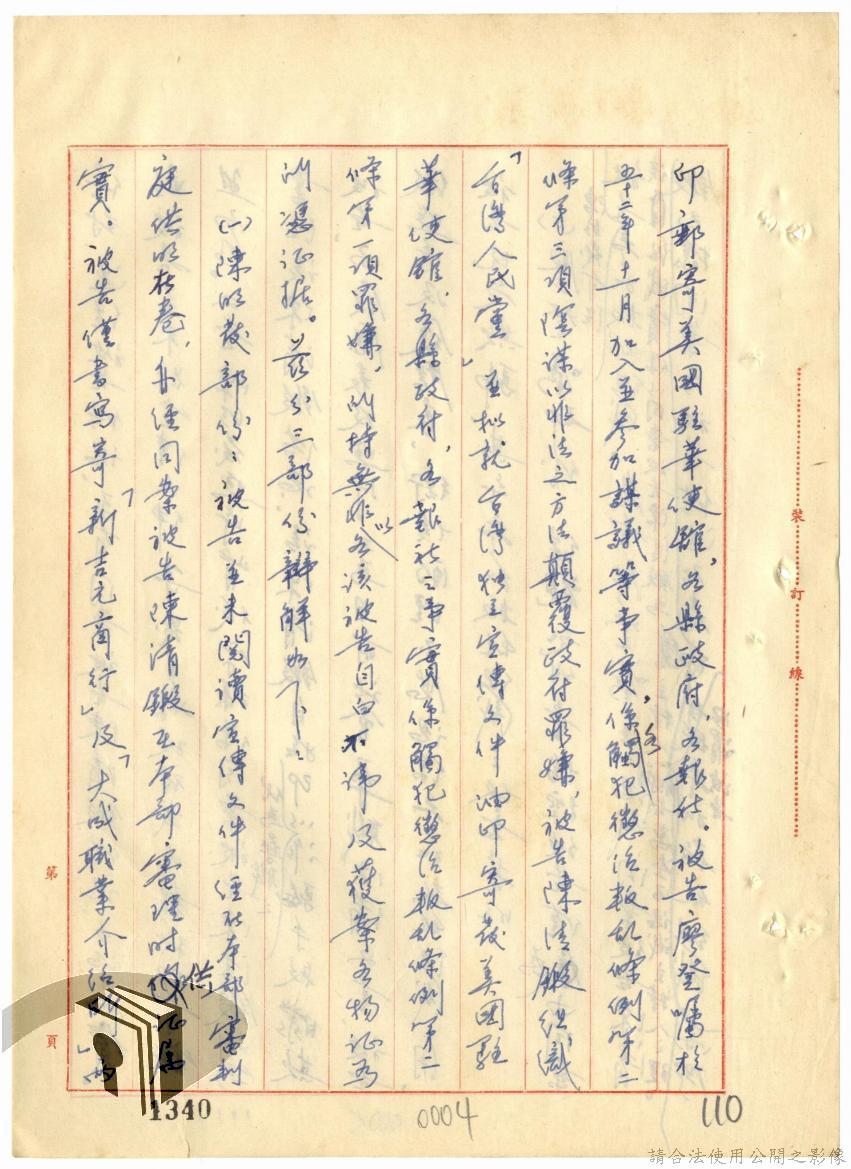 印郵寄美國駐華使館，各縣政府，各報社。被告廖登囑於
五十二年十一月加入並參加謀議等事實，係各觸犯懲治叛亂條例第二
條第三項陰謀以非法之方法顛覆政府罪嫌，被告陳清鍛組織
「台灣人民黨」並擬就台灣独立宣傳文件油印寄發美國駐
華使館，各縣政府，各報社之事實係觸犯懲治叛亂條例第二
條第一項罪嫌，所持無非以各該被告自白不諱及獲案各物証為
所憑証據。茲分三部份辯解如下：
(一)陳明發部份：被告並未閱讀宣傳文件經於本部審判
庭供明在卷，并經同案被告陳清鍛在本部審理時供証屬
實。被告僅書寫寄「新吉元商行」及「大成職業介紹所」兩
裝訂線
第 頁
1340
0004
110
請合法使用公開之影像